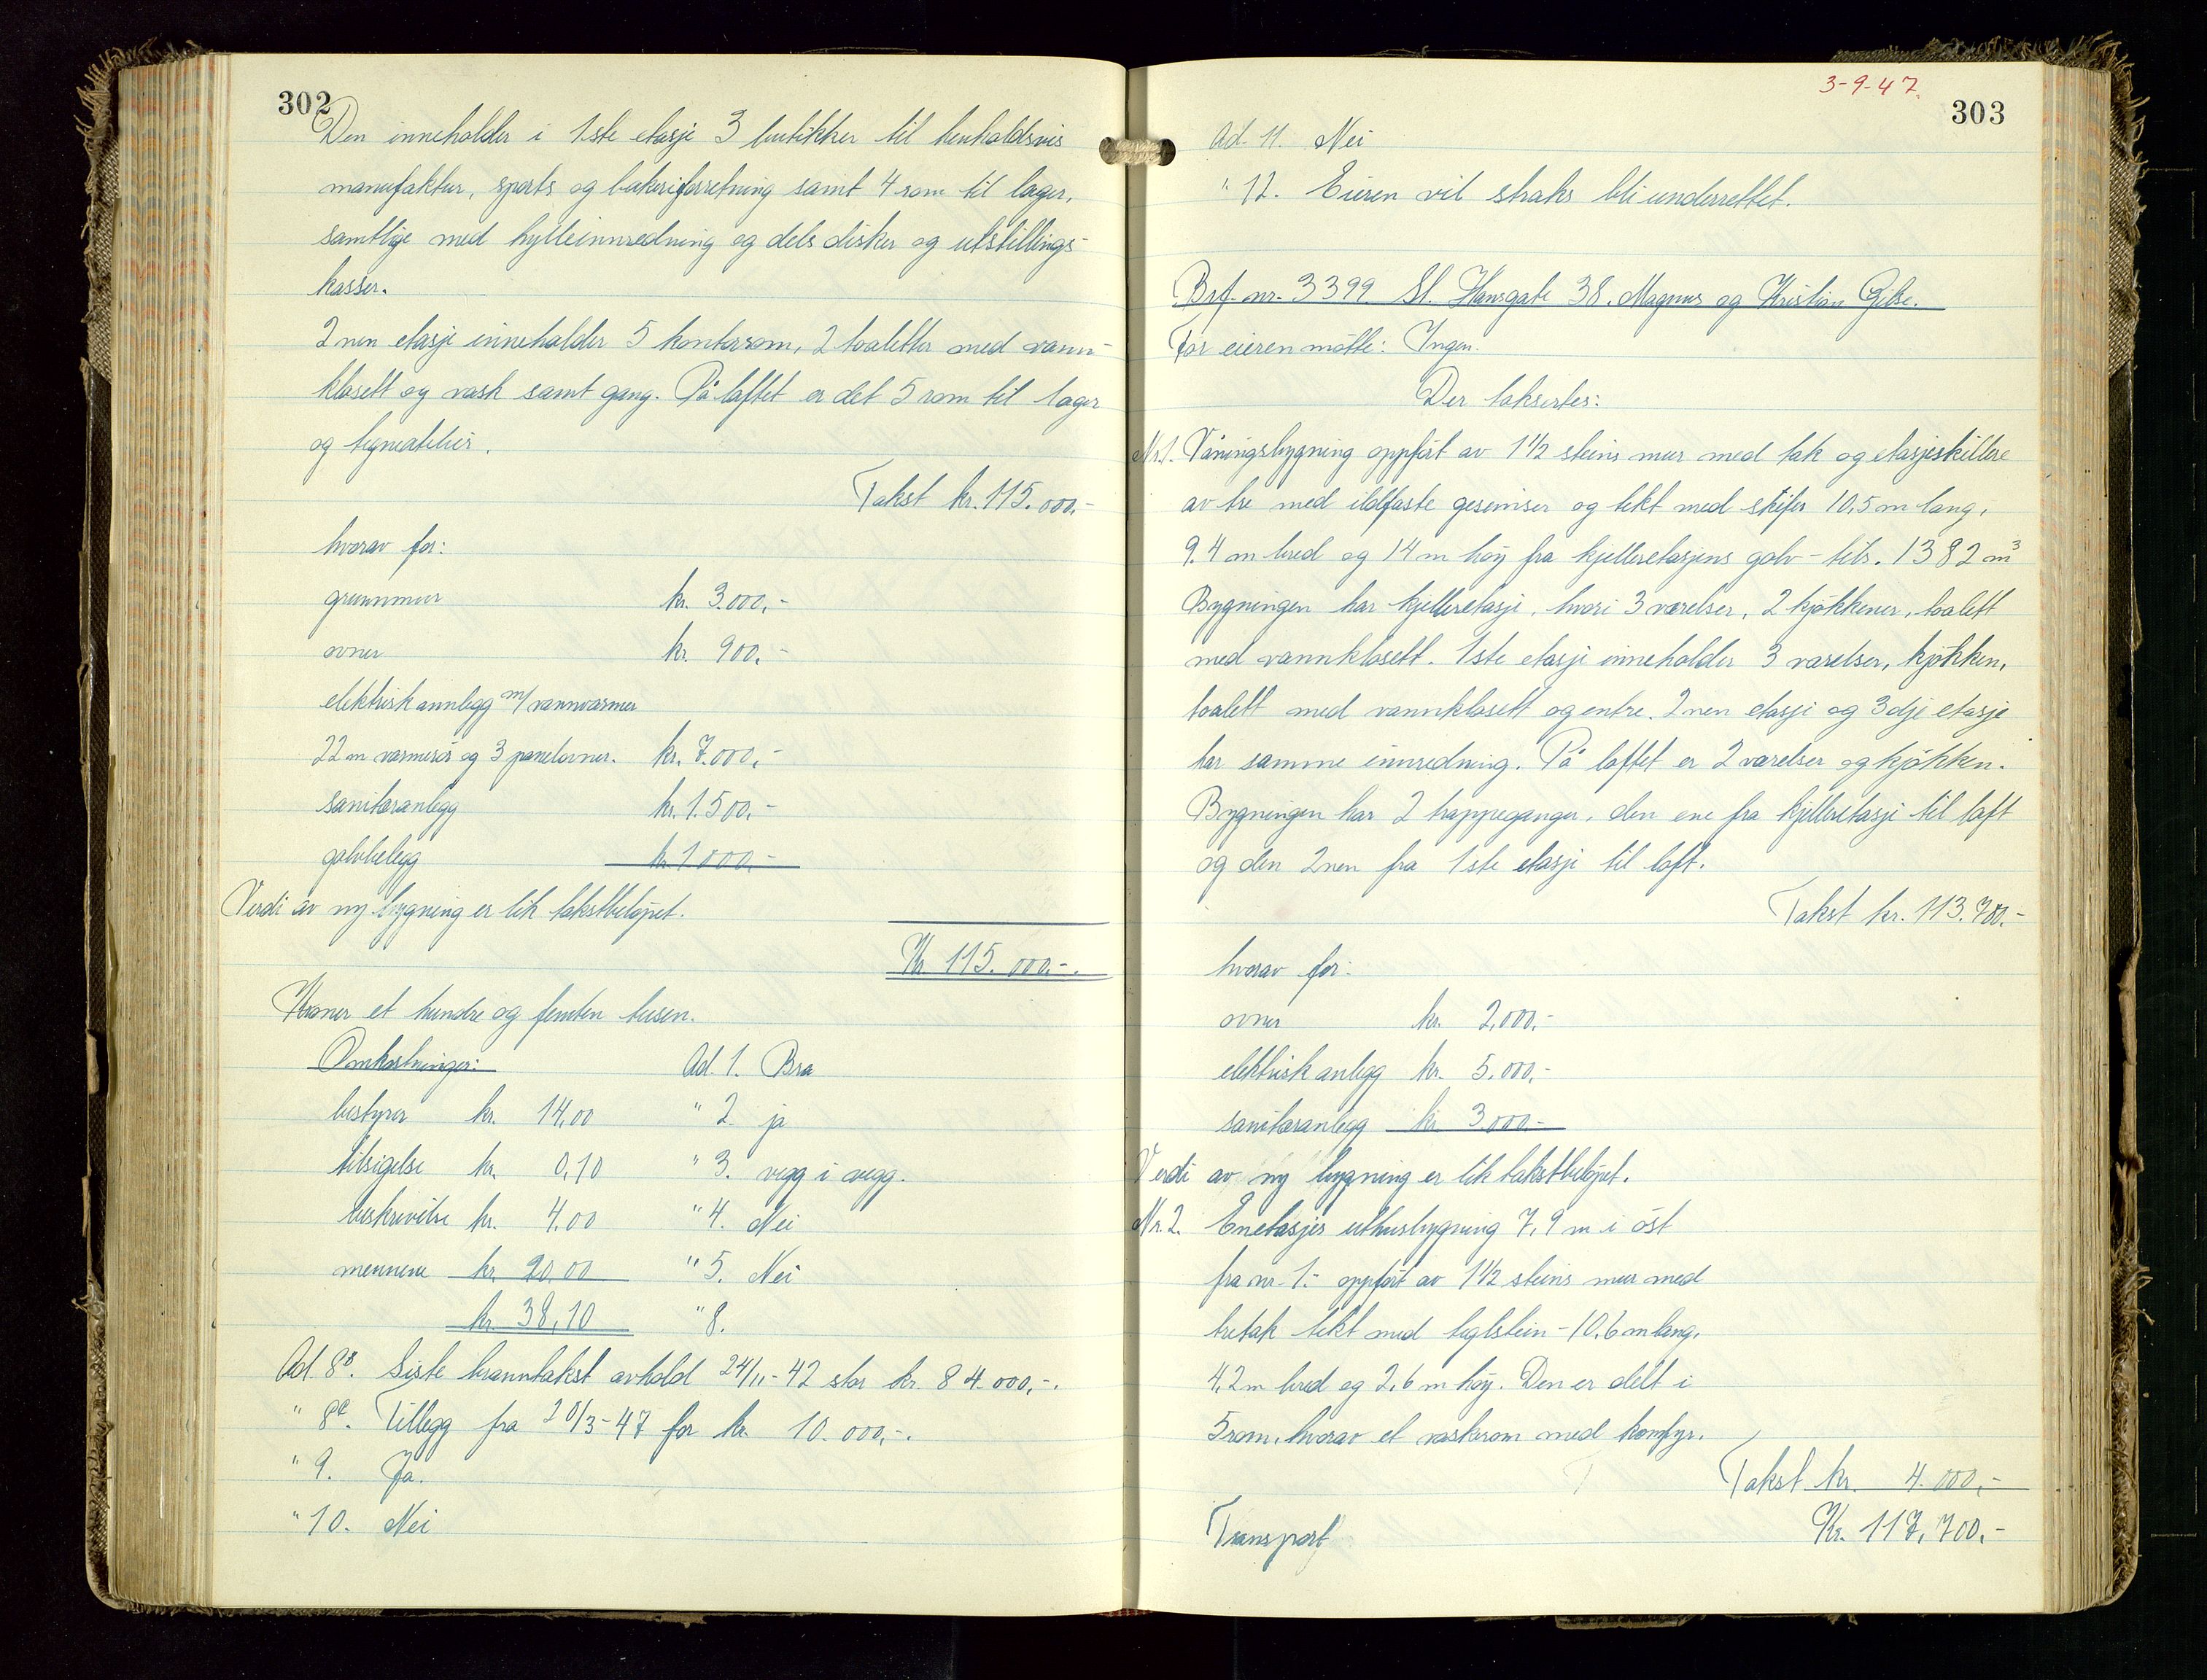 302
Den inneholder i 1ste etasje 3 butikker til henholdsvis
manufaktur, sports og bakeriforretning samt 4 rom til lager,
samtlige med hylleinnredning og dels disker og utstillings-
kasser.
2nen etasje inneholder 5 kontorrom, 2 toaletter med vann-
klosett og vask samt gang. På loftet er det 5 rom til lager
og
Takst kr. 115.000,-
hvorav for:
grunnmur kr. 3.000,-
ovner kr. 900,-
elektrisk annlegg m/ vannvarmer
22 m varmerör og 3 panelovner. kr. 7.000,-
sanitæranlegg kr. 1.500,-
golvbelegg kr 1000,-
Verdi av ny bygning er lik takstbelöpet.
Kr 115.000,-.
Kroner et hundre og femten tusen.
Omkostninger: Ad. 1. Bra
bestyrer kr. 14,00 " 2. ja
tilsigelse kr. 0,10 " 3. vegg i vegg.
beskrivelse kr. 4,00 " 4. Nei
mennene kr. 20,00 " 5. Nei
kr. 38,10 " 8.
Ad 8B. Siste branntakst avhold 24/11-42 stor kr. 84.000,-.
" 8C. Tillegg fra 20/3-47 for kr. 10.000,-.
" 9. Ja.
" 10. Nei
3-9-47.
303
Ad. 11. Nei
" 12. Eieren vil straks bli underrettet.
Brf. nr. 3399 St. Hansgate 38. Magnus og Kristian Gilse.
For eieren mötte: Ingen.
Der taksertes:
Nr. 1. Våningsbygning oppfört av 1 1/2 steins mur med tak og etasjeskillere
av tre med ildfaste gesimser og tekt med skifer 10,5 m lang,
9.4 m bred og 14 m höy fra kjelleretasjens golv - tils. 1382 m3
Bygningen har kjelleretasje, hvori 3 værelser, 2 kjökkener, toalett
med vannklosett. 1ste etasje inneholder 3 værelser, kjökken,
toalett med vannklosett og entre. 2nen etasje og 3dje etasje
har samme innredning. På loftet er 2 værelser og kjökken.
Bygningen har 2 trappeganger, den ene fra kjelleretasje til loft
og den 2nen fra 1ste etasje til loft.
Takst kr. 113.700.-
hvorav for:
ovner kr. 2.000,-
elektrisk anlegg kr. 5.000,-
sanitæranlegg kr. 3.000,-
Verdi av ny bygning er lik takstbelöpet.
Nr. 2. Enetasjes uthusbygning 7,9 m i öst
fra nr. 1.- oppfört av 1 1/2 steins mur med
tretak tekt med teglstein - 10,6 m lang,
4,2 m bred og 2,6 m höy. Den er delt i
5 rom, hvorav et vaskerom med komfyr.
Takst kr. 4.000,-
Transport Kr. 117,700.-